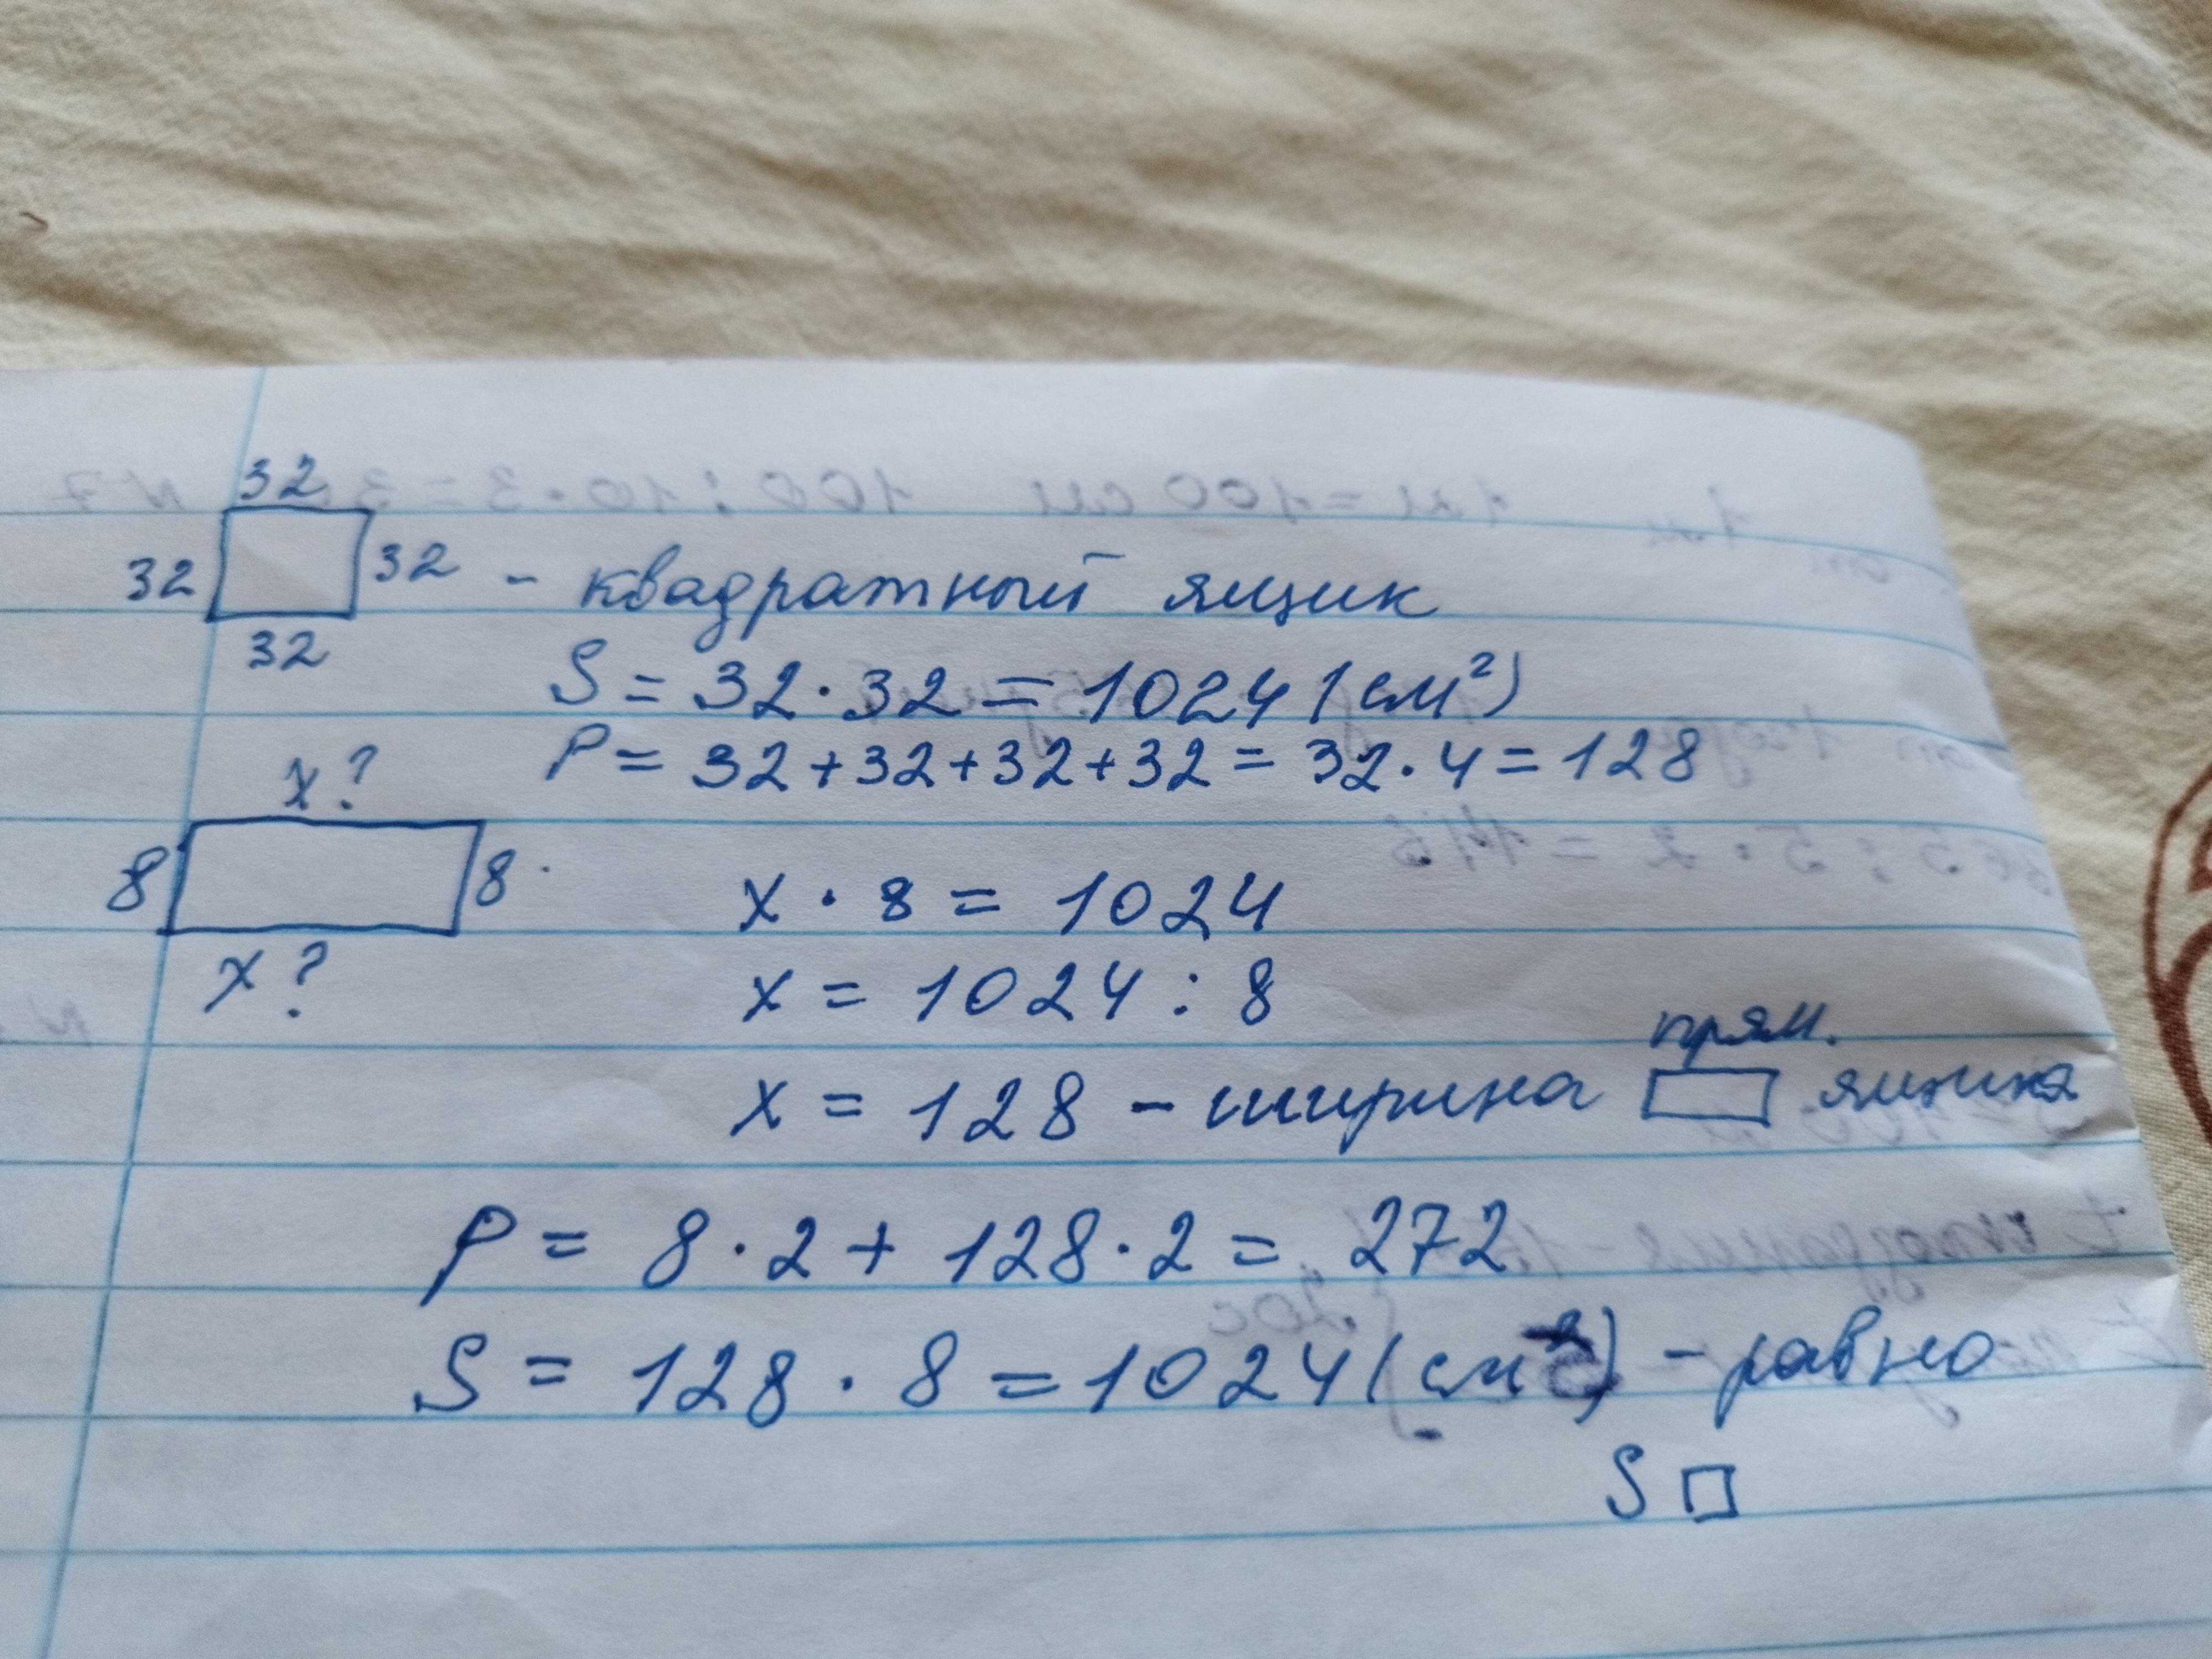 32
32 32 - квадратный ящик
32
S = 32 · 32 = 1024 (см²)
P = 32 + 32 + 32 + 32 = 32 · 4 = 128
x?
8 8
x?
x · 8 = 1024
x = 1024 : 8
прям.
x = 128 - ширина ящика
P = 8 · 2 + 128 · 2 = 272
S = 128 · 8 = 1024 (см²) - равно
S